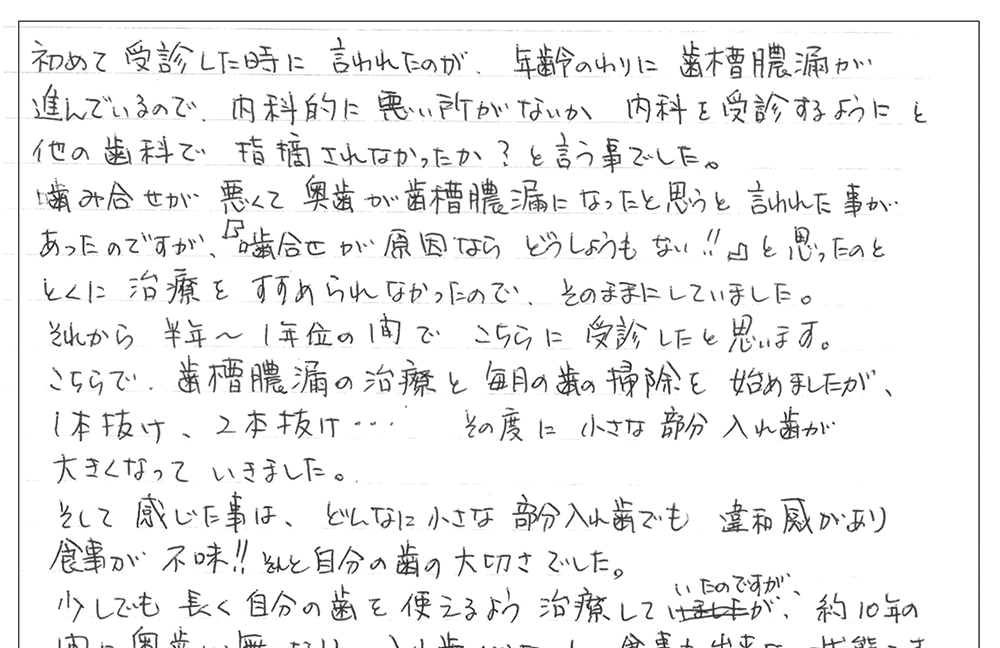 初めて受診した時に言われたのが、年齢のわりに歯槽膿漏が
進んでいるので、内科的に悪い所がないか 内科を受診するようにと
他の歯科で 指摘されなかったか?と言う事でした。
噛み合せが悪くて奥歯が歯槽膿漏になったと思うと言われた事が
あったのですが、『噛合せが原因ならどうしようもない!!』と思ったのと
とくに治療をすすめられなかったので、そのままにしていました。
それから 半年〜1年位の間で こちらに受診したと思います。
こちらで、歯槽膿漏の治療と毎月の歯の掃除を始めましたが、
1本抜け、2本抜け… その度に小さな部分入れ歯が
大きくなっていきました。
そして感じた事は、どんなに小さな部分入れ歯でも 違和感があり
食事が不味!!それと自分の歯の大切さでした。
少しでも長く自分の歯を使えるよう治療していたのですが、約10年の
間に奥歯が無くなり、入れ歯